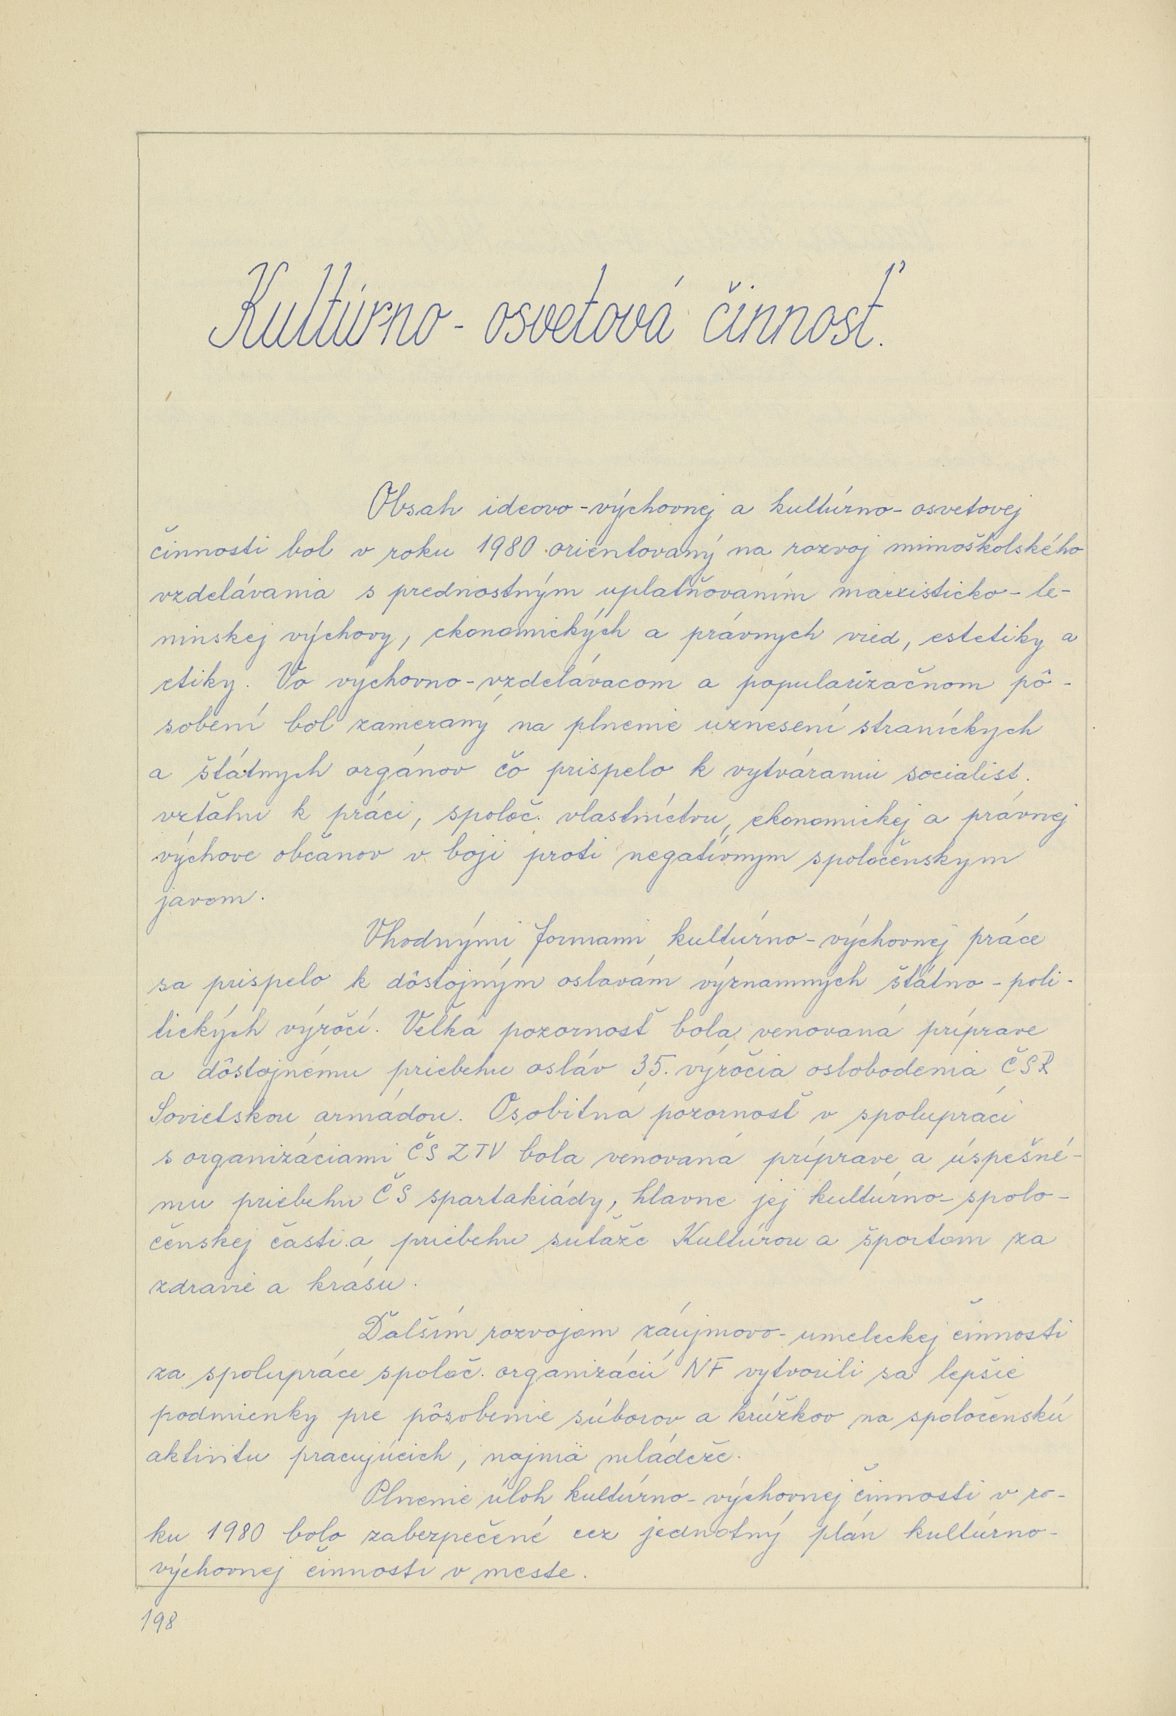 Kultúrno - osvetová činnosť.
Obsah ideovo - výchovnej a kultúrno - osvetovej
činnosti bol v roku 1980 orientovaný na rozvoj mimoškolského
vzdelávania s prednostným uplatňovaním marxisticko - le-
ninskej výchovy, ekonomických a právnych vied, estetiky a
etiky. Vo výchovno - vzdelávacom a popularizačnom pô-
sobení bol zameraný na plnenie uznesení straníckych
a štátnych orgánov čo prispelo k vytváraniu socialist.
vzťahu k práci, spoloč. vlastníctvu, ekonomickej a právnej
výchove občanov v boji proti negatívnym spoločenským
javom.
Vhodnými formami kultúrno - výchovnej práce
sa prispelo k dôstojným oslavám významných štátno - poli-
tických výročí. Veľká pozornosť bola venovaná príprave
a dôstojnému priebehu osláv 35. výročia oslobodenia ČSR
Sovietskou armádou. Osobitná pozornosť v spolupráci
s organizáciami ČSZTV bola venovaná príprave a úspešné-
mu priebehu ČS spartakiády, hlavne jej kultúrno - spolo-
čenskej časti a priebehu súťaže Kultúrou a športom za
zdravie a krásu.
Ďalším rozvojom záujmovo - umeleckej činnosti
za spolupráce spoloč. organizácií NF vytvorili sa lepšie
podmienky pre pôsobenie súborov a krúžkov na spoločenskú
aktivitu pracujúcich, najmä mládeže.
Plnenie úloh kultúrno - výchovnej činnosti v ro-
ku 1980 bolo zabezpečené cez jednotný plán kultúrno-
výchovnej činnosti v meste.
198